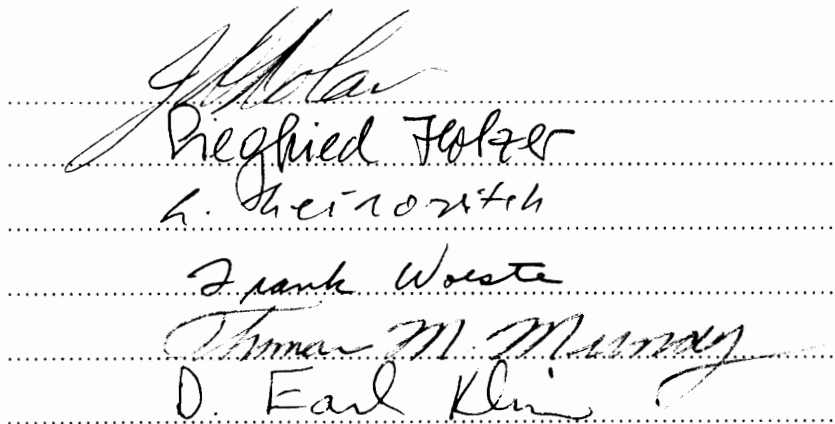 Siegfried Holzer
L. Meirovitch
Frank Woeste
Thomas M. Murray
D. Earl Kline